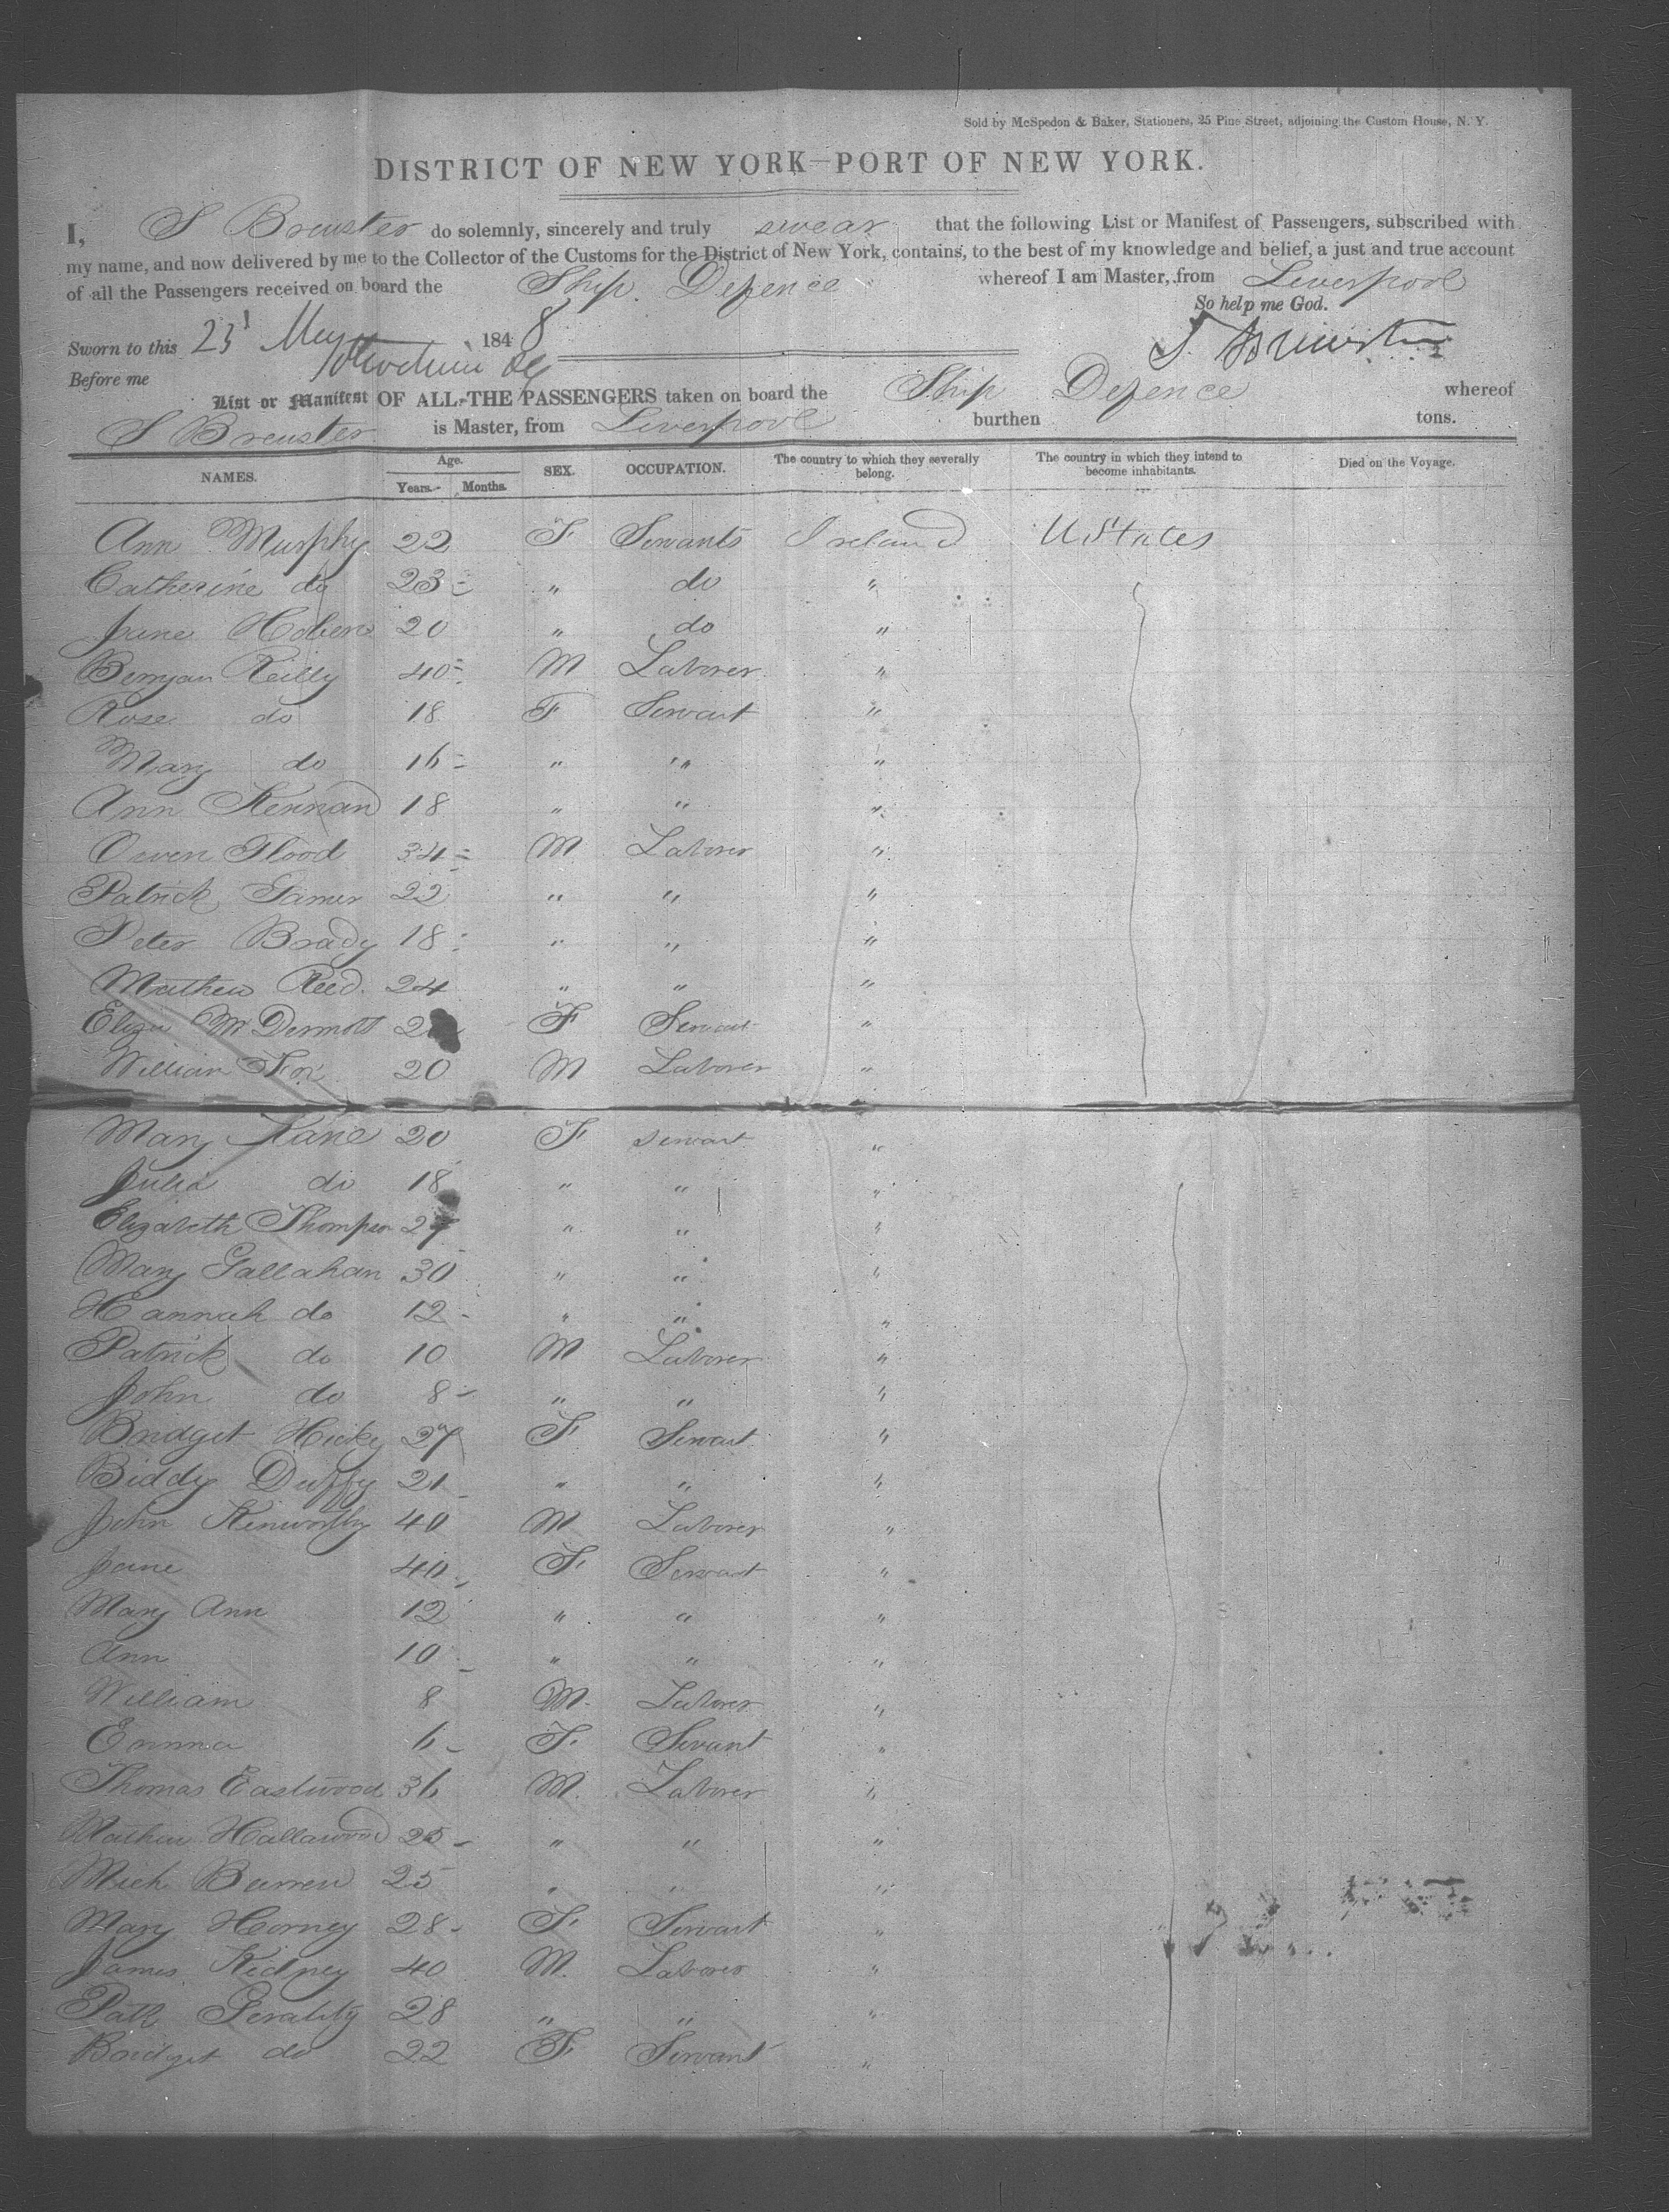 Sold by McSpedon & Baker, Stationers, 25 Pine Street, adjoining the Custom House, N. Y.
DISTRICT OF NEW YORK—PORT OF NEW YORK.
I, S Brewster do solemnly, sincerely and truly swear that the following List or Manifest of Passengers, subscribed with
my name, and now delivered by me to the Collector of the Customs for the District of New York, contains, to the best of my knowledge and belief, a just and true account
of all the Passengers received on board the Ship Defence whereof I am Master, from Liverpool
So help me God.
Sworn to this 23 May 1848 S. Brewster
Before me
List or Manifest OF ALL THE PASSENGERS taken on board the Ship Defence whereof
S Brewster is Master, from Liverpool burthen tons.
NAMES. Age. Years. Months. SEX. OCCUPATION. The country to which they severally belong. The country in which they intend to become inhabitants. Died on the Voyage.
Ann Murphy 22 F Servants Ireland U States
Catherine do 23 " do "
Jane Hoben 20 " do "
Reilly 40 M Laborer "
Rose do 18 F Servant "
Mary do 16 " " "
Ann Kernan 18 " " "
Owen Flood 34 M Laborer "
Patrick 22 " " "
Peter Brady 18 " " "
Mathew Reed 24 " " "
Eliza McDermott F Servant "
William Fox 20 M Laborer "
Mary Kane 20 F Servant "
Julia do 18 " " "
Elizabeth Thompson 27 " " "
Mary Gallahan 30 " " "
Hannah do 12 " " "
Patrick do 10 M Laborer "
John do 8 " " "
Bridget Hicky 27 F Servant "
Biddy Duffy 21 " " "
John Kenworthy 40 M Laborer "
Jane 40 F Servant "
Mary Ann 12 " " "
Ann 10 " " "
William 8 M. Laborer "
Emma 6 F. Servant "
Thomas Eastwood 36 M. Laborer "
Hallawood 25 " " "
Mich Burren 25 " " "
Mary Horney 28 F Servant "
James Kidney 40 M. Laborer "
Patk Gerality 28 " " "
Bridget do 22 F Servant "